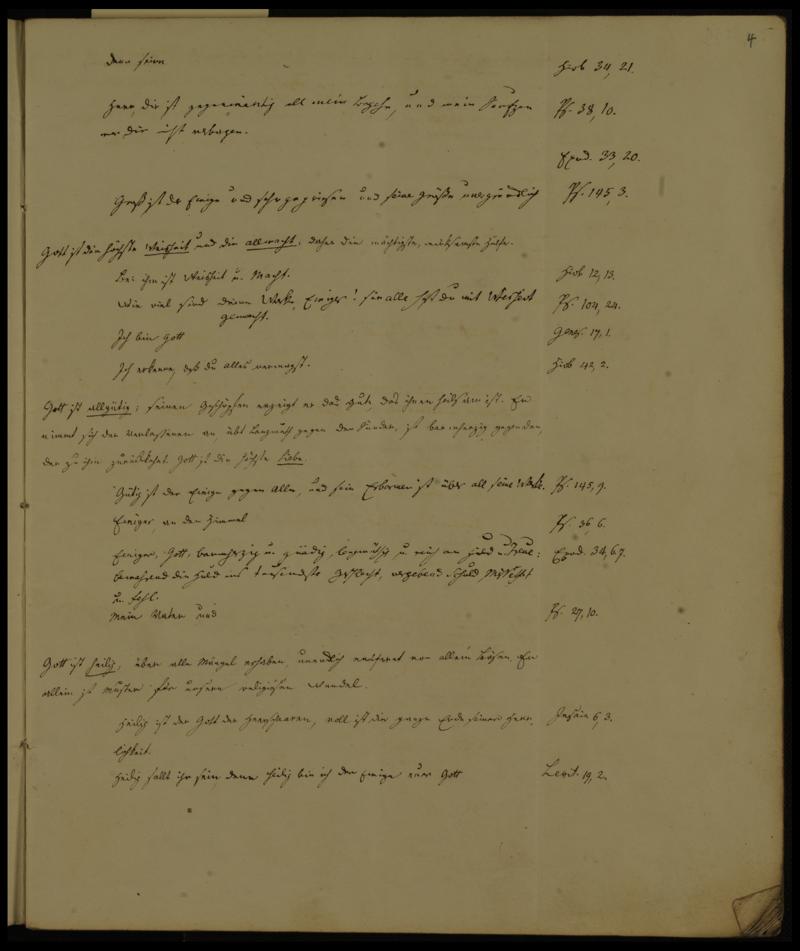 4
Denn seine Hiob 34, 21.
Herr, dir ist gegenwärtig all mein Begehr, und mein Seufzen Ps. 38, 10.
vor dir nicht verborgen.
Exod. 33, 20.
Groß ist der Einige und sehr gepriesen und seine Größe unergründlich Ps. 145, 3.
Gott ist die höchste Weisheit und die Allmacht; daher die mächtigste, wirksamste Hülfe.
Bei ihm ist Weisheit u. Macht. Hiob 12, 13.
Wie viel sind deiner Werke, Einiger! sie alle hast du mit Weisheit Ps. 104, 24.
gemacht.
Ich bin Gott Genes. 17, 1.
Ich erkenne, daß du alles vermagst. Hiob 42, 2.
Gott ist allgütig; seinen Geschöpfen erzeigt er das Gute, das ihnen heilsam ist. Er
nimmt sich der Verlassenen an, übt Langmuth gegen den Sünder, ist barmherzig gegen den,
der zu ihm zurückkehrt. Gott ist die höchste Liebe.
Gütig ist der Einige gegen Alle, und sein Erbarmen ist über all seine Werke. Ps. 145, 9.
Einiger, an den Himmel Ps. 36, 6.
Einiger, Gott, barmherzig u. gnädig, langmüthig u. reich an Huld u. Treue: Exod. 34, 6.7.
bewahrend die Huld ins tausendste Geschlecht, vergebend Schuld, Missethat
u. Fehl.
Mein Vater und Ps. 27, 10.
Gott ist heilig, über alle Mängel erhaben, unendlich entfernt von allem Bösen. Er
allein ist Muster für unsern religiösen Wandel.
Heilig ist der Gott der Heerschaaren, voll ist die ganze Erde seiner Herr- Jesaia 6, 3.
lichkeit.
Heilig sollt ihr sein, denn heilig bin ich der Einige euer Gott Levit. 19, 2.